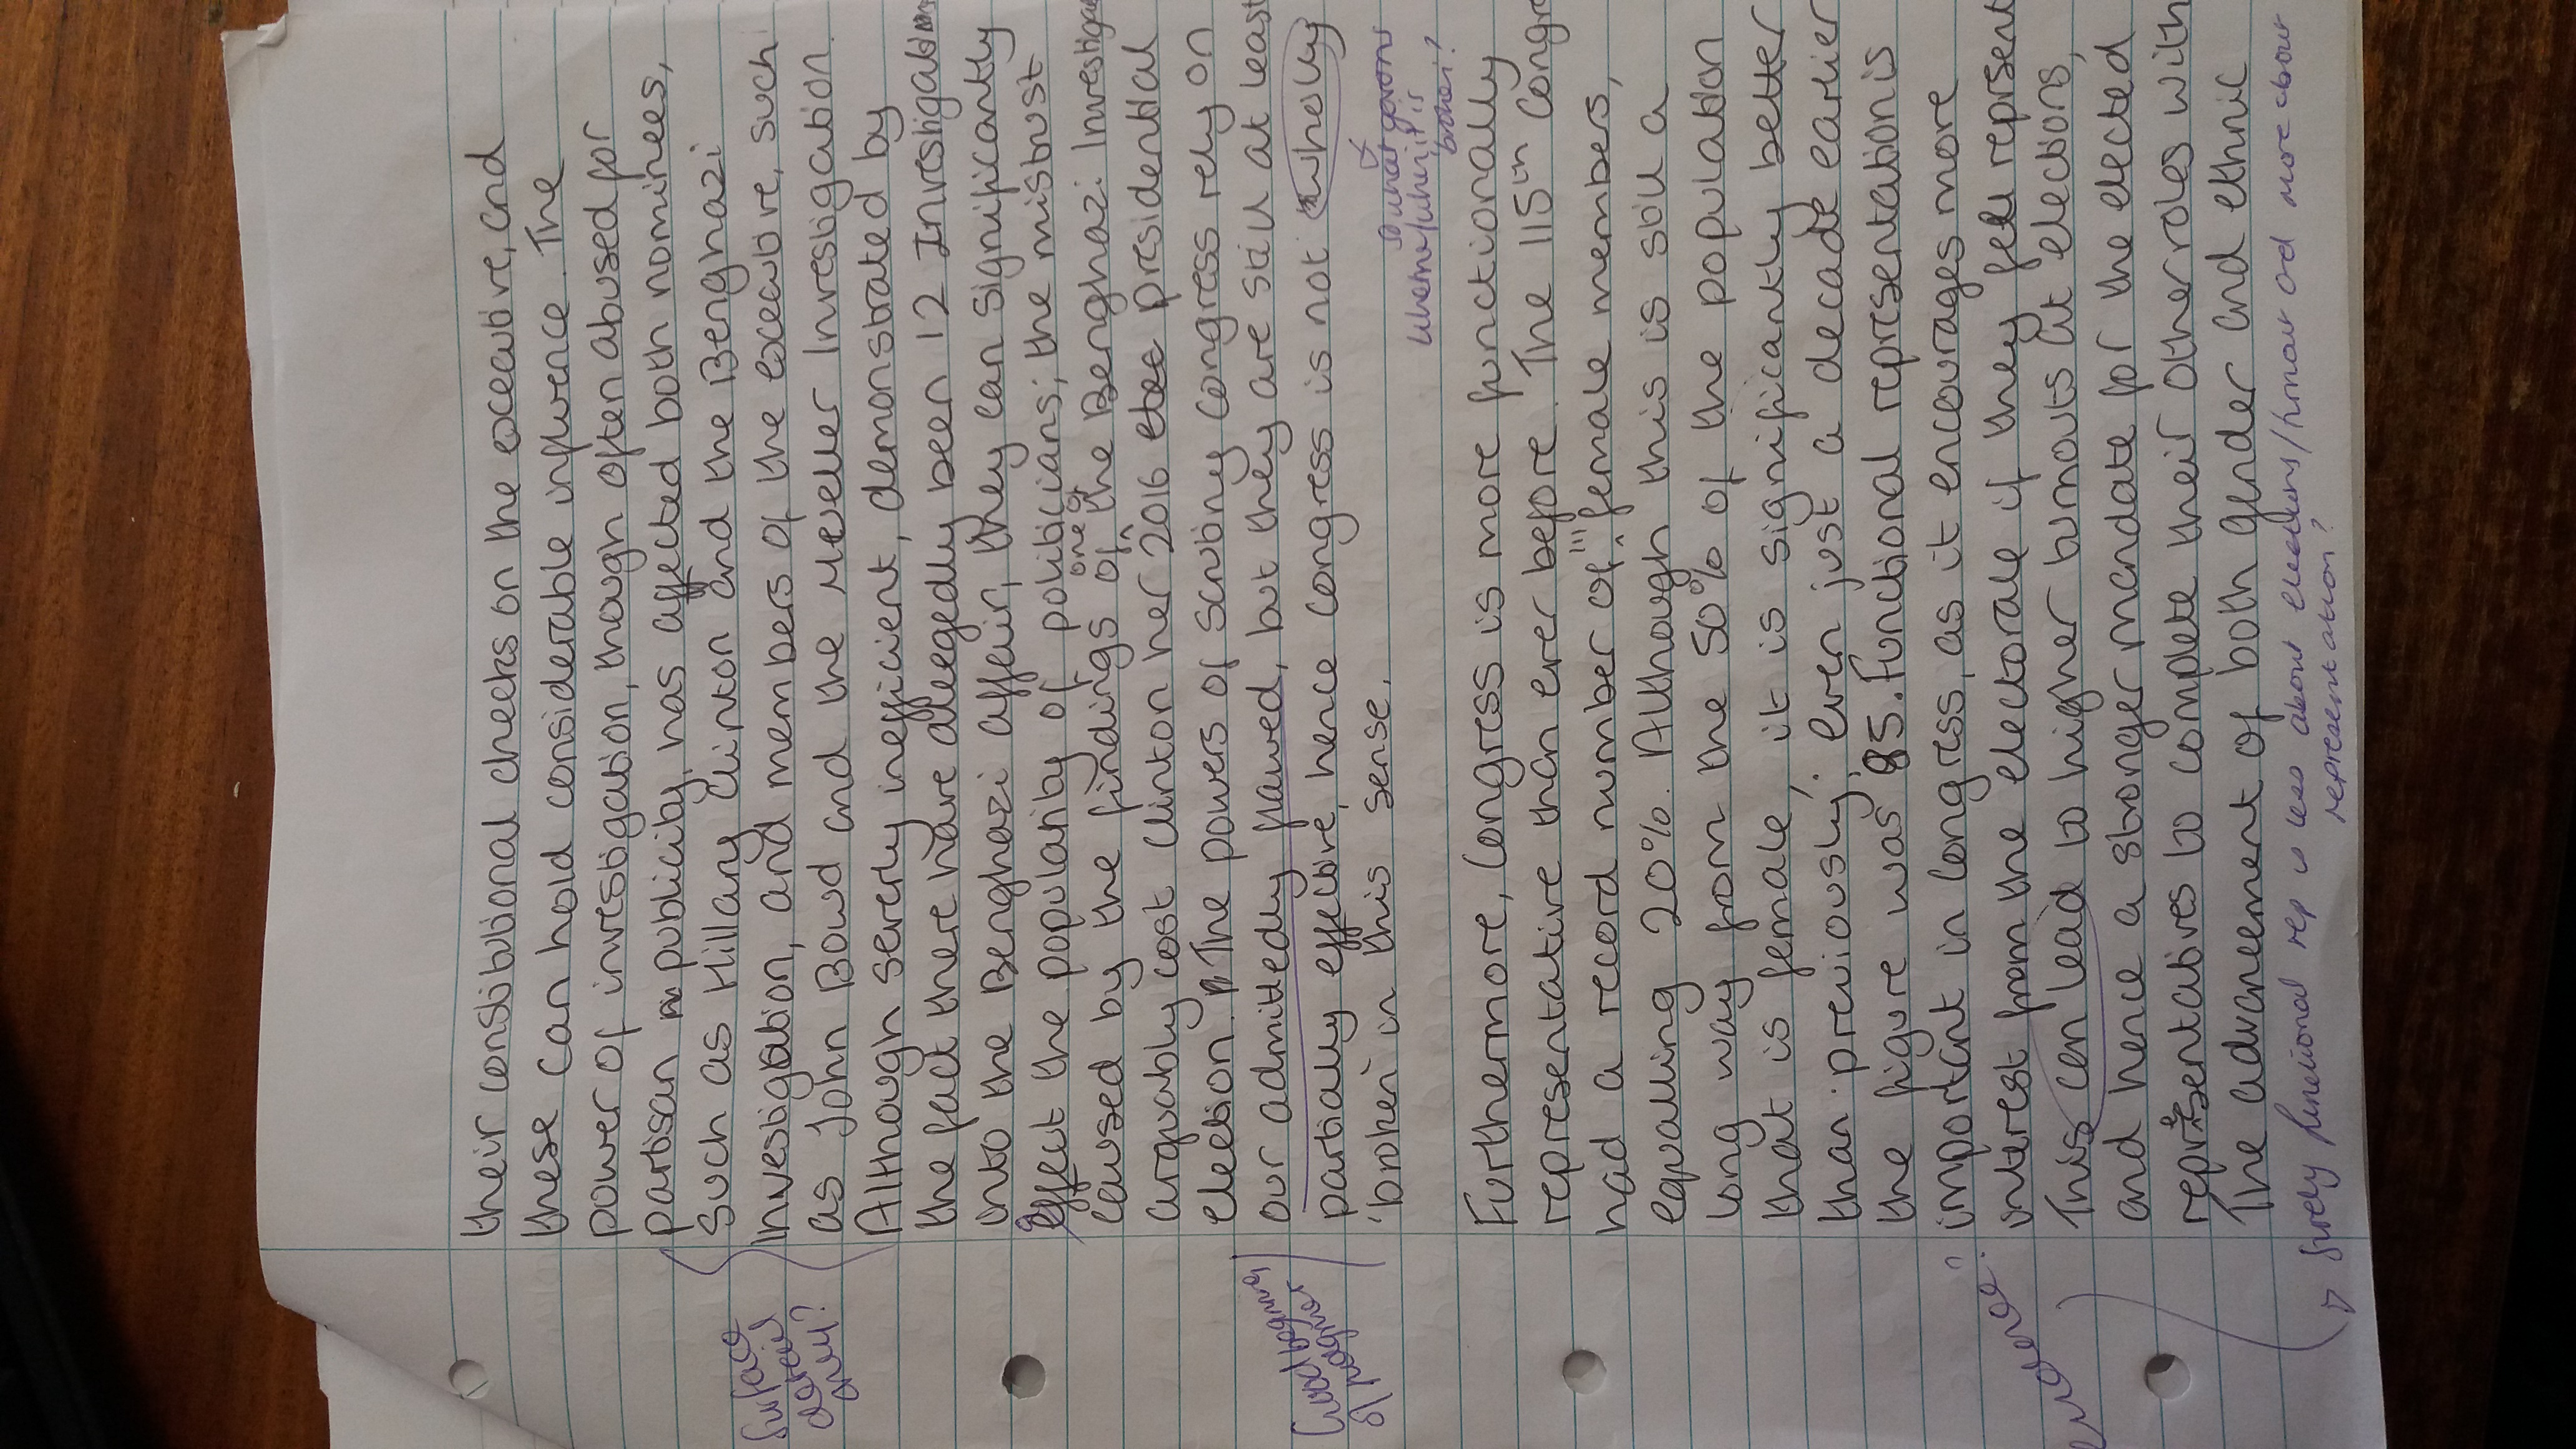 their constitutional checks on the executive, and
these can hold considerable influence. The
power of investigation, though often abused for
partisan publicity, has affected both nominees,
such as Hillary Clinton and the Benghazi
Investigation, and members of the executive, such
as John Bowd and the Meuller Investigation.
Although severly inefficient, demonstrated by
the fact there have allegedly been 12 Investigations
into the Benghazi affair, they can significantly
effect the popularity of politicians; the mistrust
caused by the findings of one of the Benghazi Investiga
arguably cost Clinton her 2016 presidential
election. The powers of scrutiny Congress rely on
our admittedly flawed, but they are still at least
partially effective, hence congress is not wholly
'broken' in this sense.
so what governs
whether/when it is
broken?
Surface
detail
only?
Good beginnings
of
Furthermore, Congress is more functionally
representative than ever before. The 115th Congre
had a record number of 111 female members,
equalling 20%. Although this is still a
long way from the 50% of the population
that is female, it is significantly better
than previously; even just a decade earlier
the figure was 85. Functional representation is
important in Congress, as it encourages more
interest from the electorate if they feel represent
This can lead to higher turnouts at elections,
and hence a stronger mandate for the elected
representatives to complete their other roles with
The advancement of both gender and ethnic
evidence?
Surely functional rep is less about elections/turnout and more about
representation?